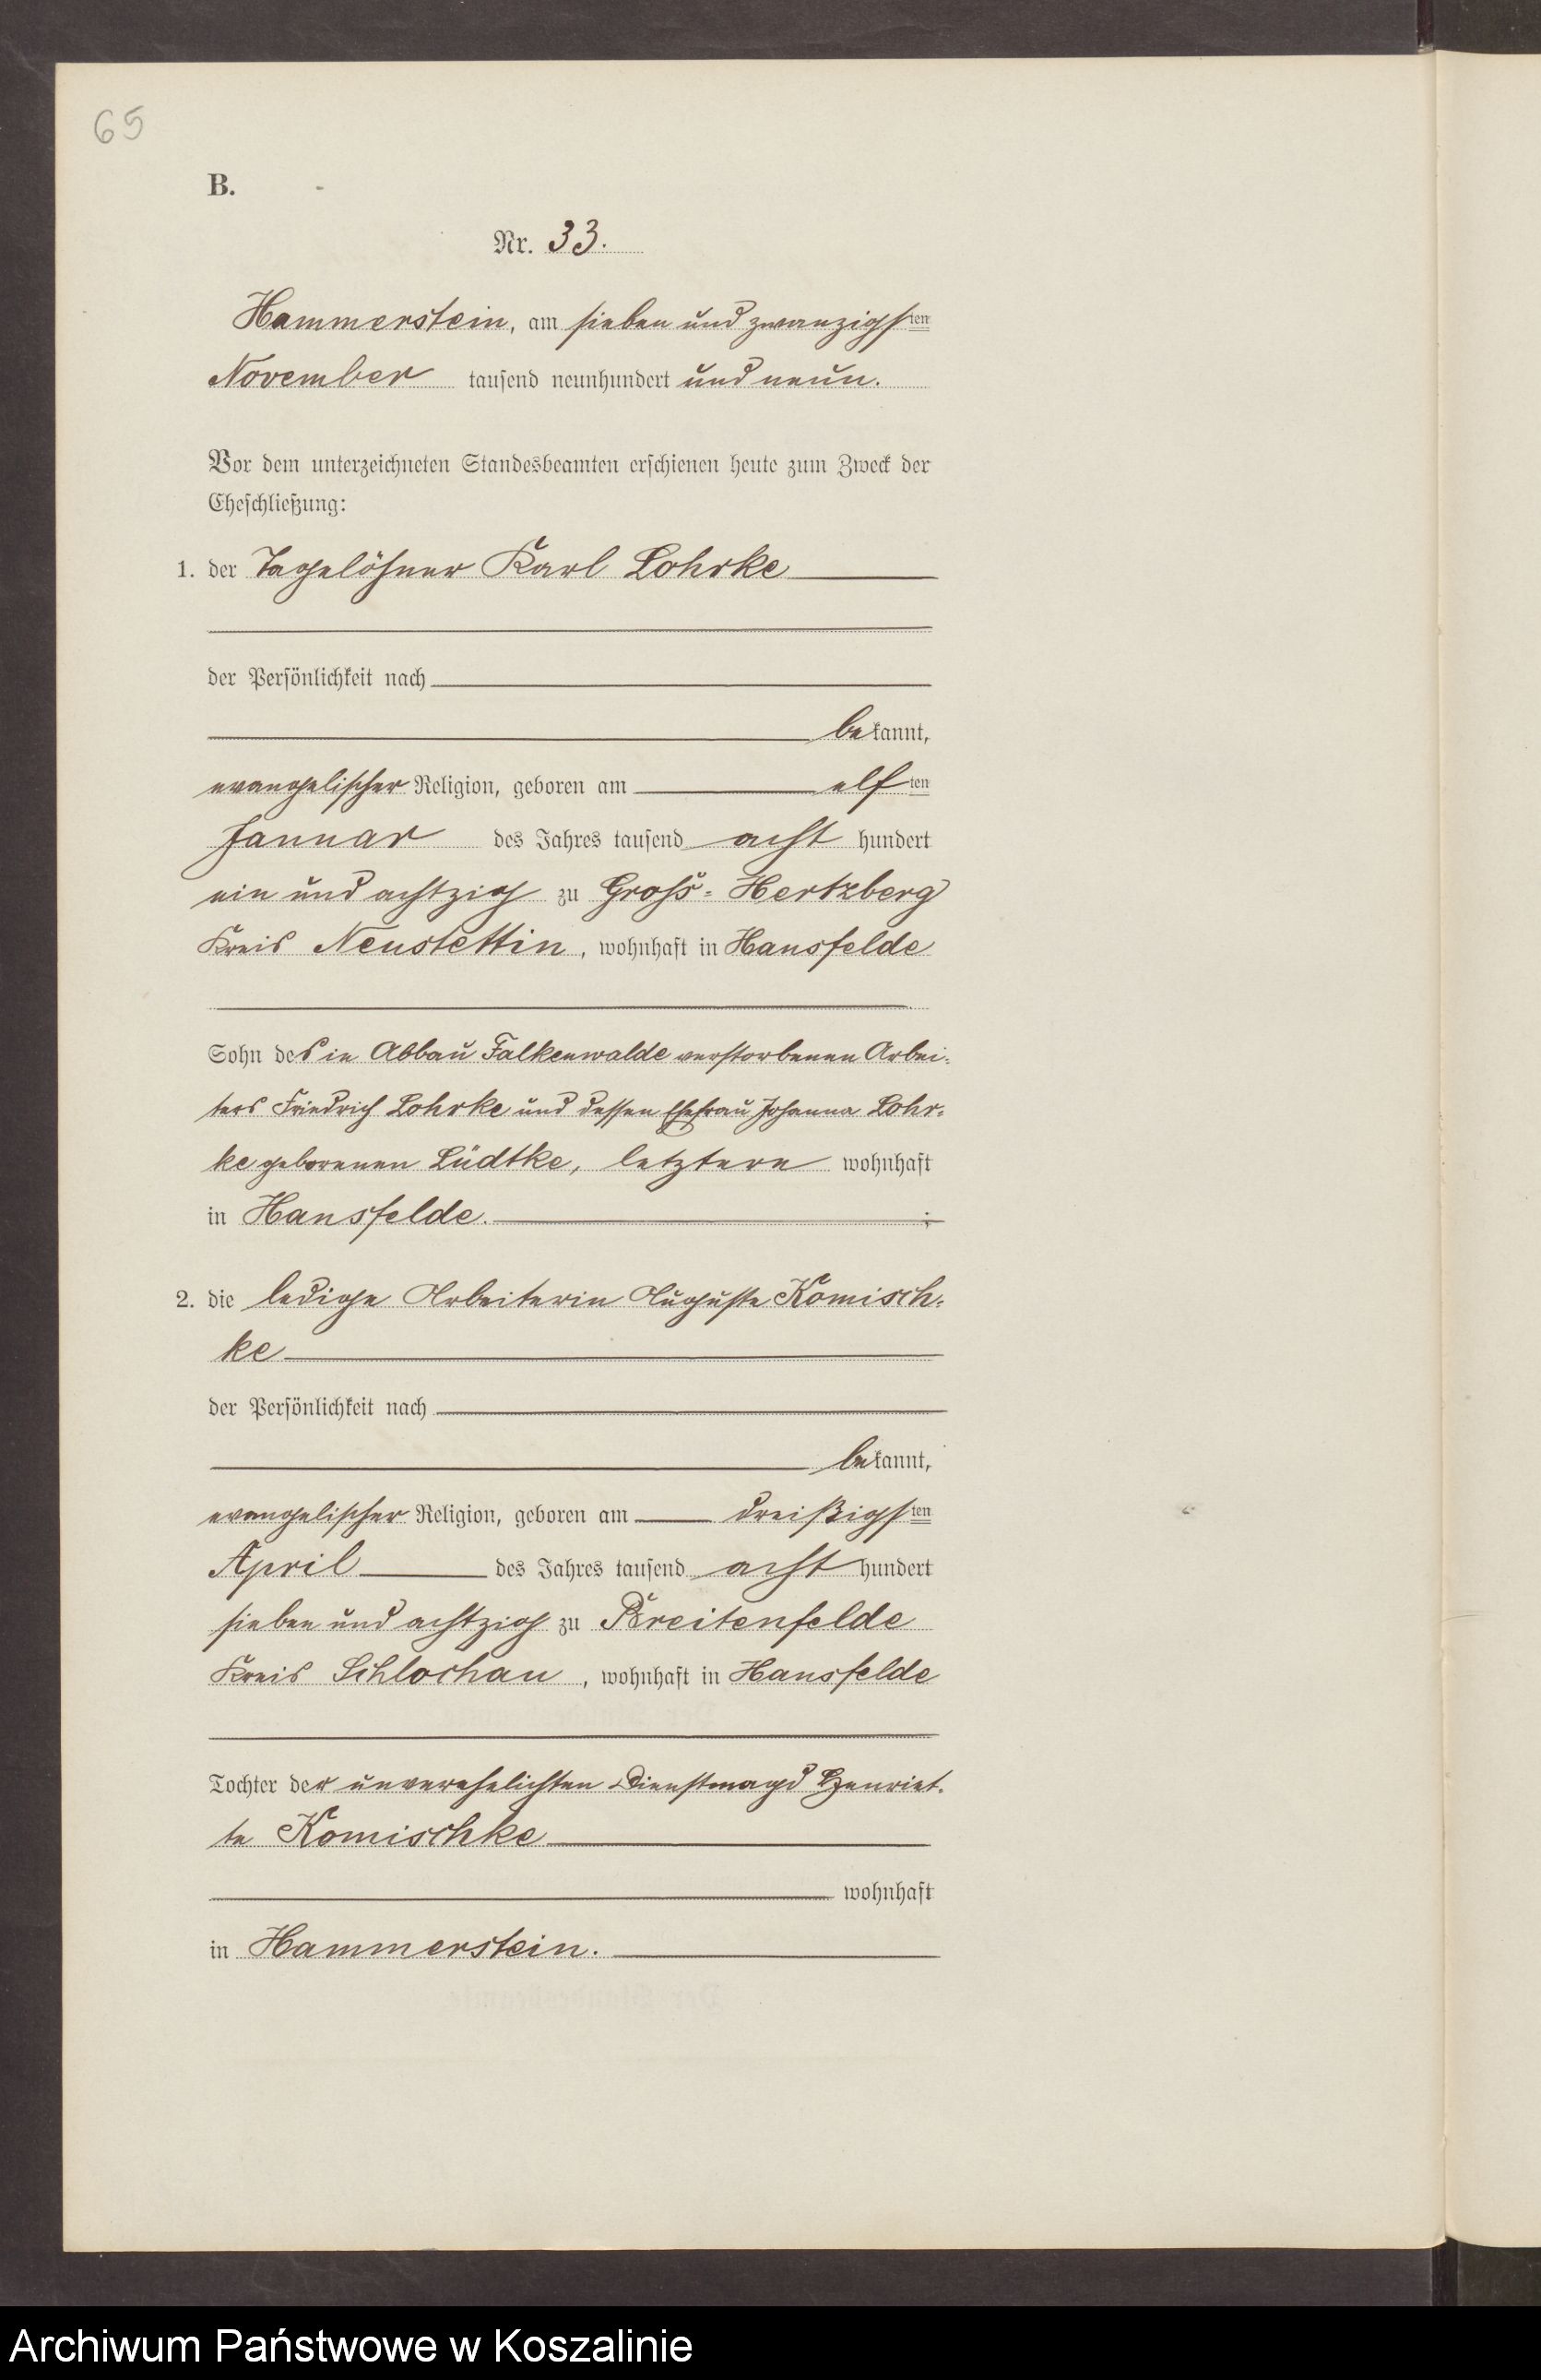 65
B.
Nr. 33.
Hammerstein, am sieben und zwanzigsten
November tausend neunhundert und neun.
Vor dem unterzeichneten Standesbeamten erschienen heute zum Zweck der
Eheschließung:
1. der Tagelöhner Karl Lohrke
der Persönlichkeit nach
bekannt,
evangelischer Religion, geboren am elften
Januar des Jahres tausend acht hundert
ein und achtzig zu Groß-Hertzberg
Kreis Neustettin, wohnhaft in Hansfelde
Sohn des in Abbau Falkenwalde verstorbenen Arbei-
ters Friedrich Lohrke und dessen Ehefrau Johanna Lohr-
ke geborenen Lüdtke, letztere wohnhaft
in Hansfelde. ;
2. die ledige Arbeiterin Auguste Komisch-
ke
der Persönlichkeit nach
bekannt,
evangelischer Religion, geboren am dreißigsten
April des Jahres tausend acht hundert
sieben und achtzig zu Breitenfelde
Kreis Schlochau, wohnhaft in Hansfelde
Tochter der unverehelichten Dienstmagd Henriet-
te Komischke
wohnhaft
in Hammerstein.
Archiwum Państwowe w Koszalinie